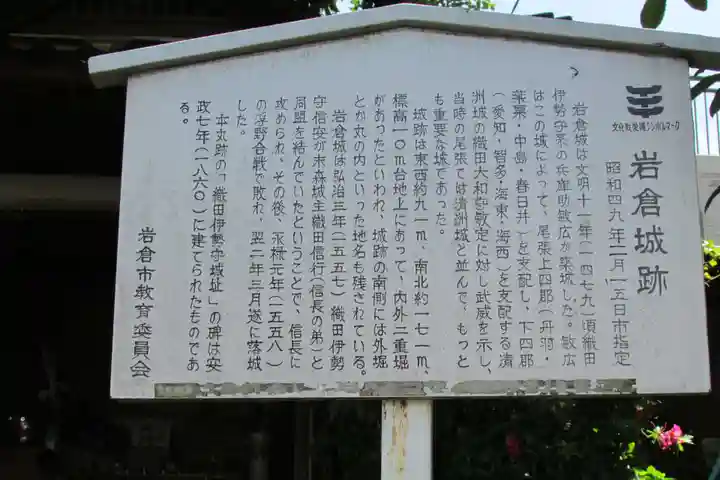 文化財愛護シンボルマーク
岩倉城跡
昭和四九年十二月一五日市指定
岩倉城は文明十一年(一四七九)頃織田
伊勢守系の兵庫助敏広が築城した。敏広
はこの城によって、尾張上四郡(丹羽・
葉栗・中島・春日井)を支配し、下四郡
(愛知・智多・海東・海西)を支配する清
洲城の織田大和守敏定に対し武威を示し、
当時の尾張では清洲城と並んで、もっと
も重要な城であった。
城跡は東西約九一m、南北約一七一m、
標高一〇m台地上にあって、内外二重堀
があったといわれ、城跡の南側には外堀
とか丸の内といった地名も残されている。
岩倉城は弘治三年(一五五七)織田伊勢
守信安が末森城主織田信行(信長の弟)と
同盟を結んでいたということで、信長に
攻められ、その後、永禄元年(一五五八)
の浮野合戦で敗れ、翌二年三月遂に落城
した。
本丸跡の「織田伊勢守城址」の碑は安
政七年(一八六〇)に建てられたものであ
る。
岩倉市教育委員会